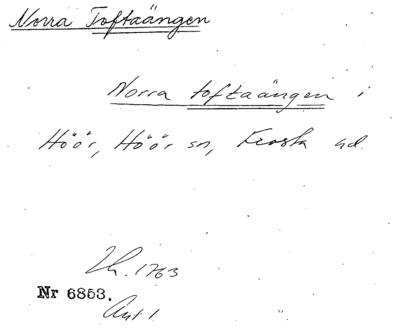 Norra Toftaängen
Norra toftaängen i
Höör, Höör sn, Frosta hd.
Lh. 1763
Nr 6853.
Akt 1